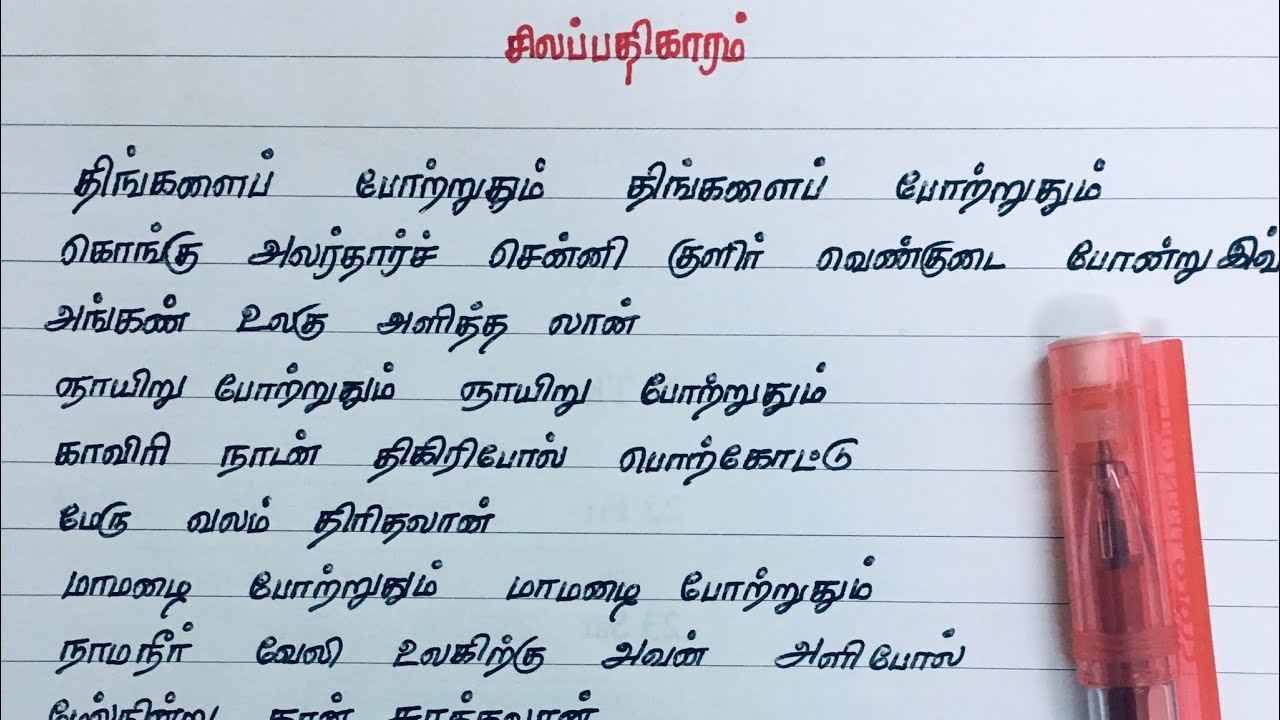 சிலப்பதிகாரம்
திங்களைப் போற்றுதும் திங்களைப் போற்றுதும்
கொங்கு அலர்தார்ச் சென்னி குளிர் வெண்குடை போன்று இவ்
அங்கண் உலகு அளித்த லான்
ஞாயிறு போற்றுதும் ஞாயிறு போற்றுதும்
காவிரி நாடன் திகிரிபோல் பொற்கோட்டு
மேரு வலம் திரிதலான்
மாமழை போற்றுதும் மாமழை போற்றுதும்
நாமநீர் வேலி உலகிற்கு அவன் அளிபோல்
மேல்நின்று தான் சுரத்தலான்